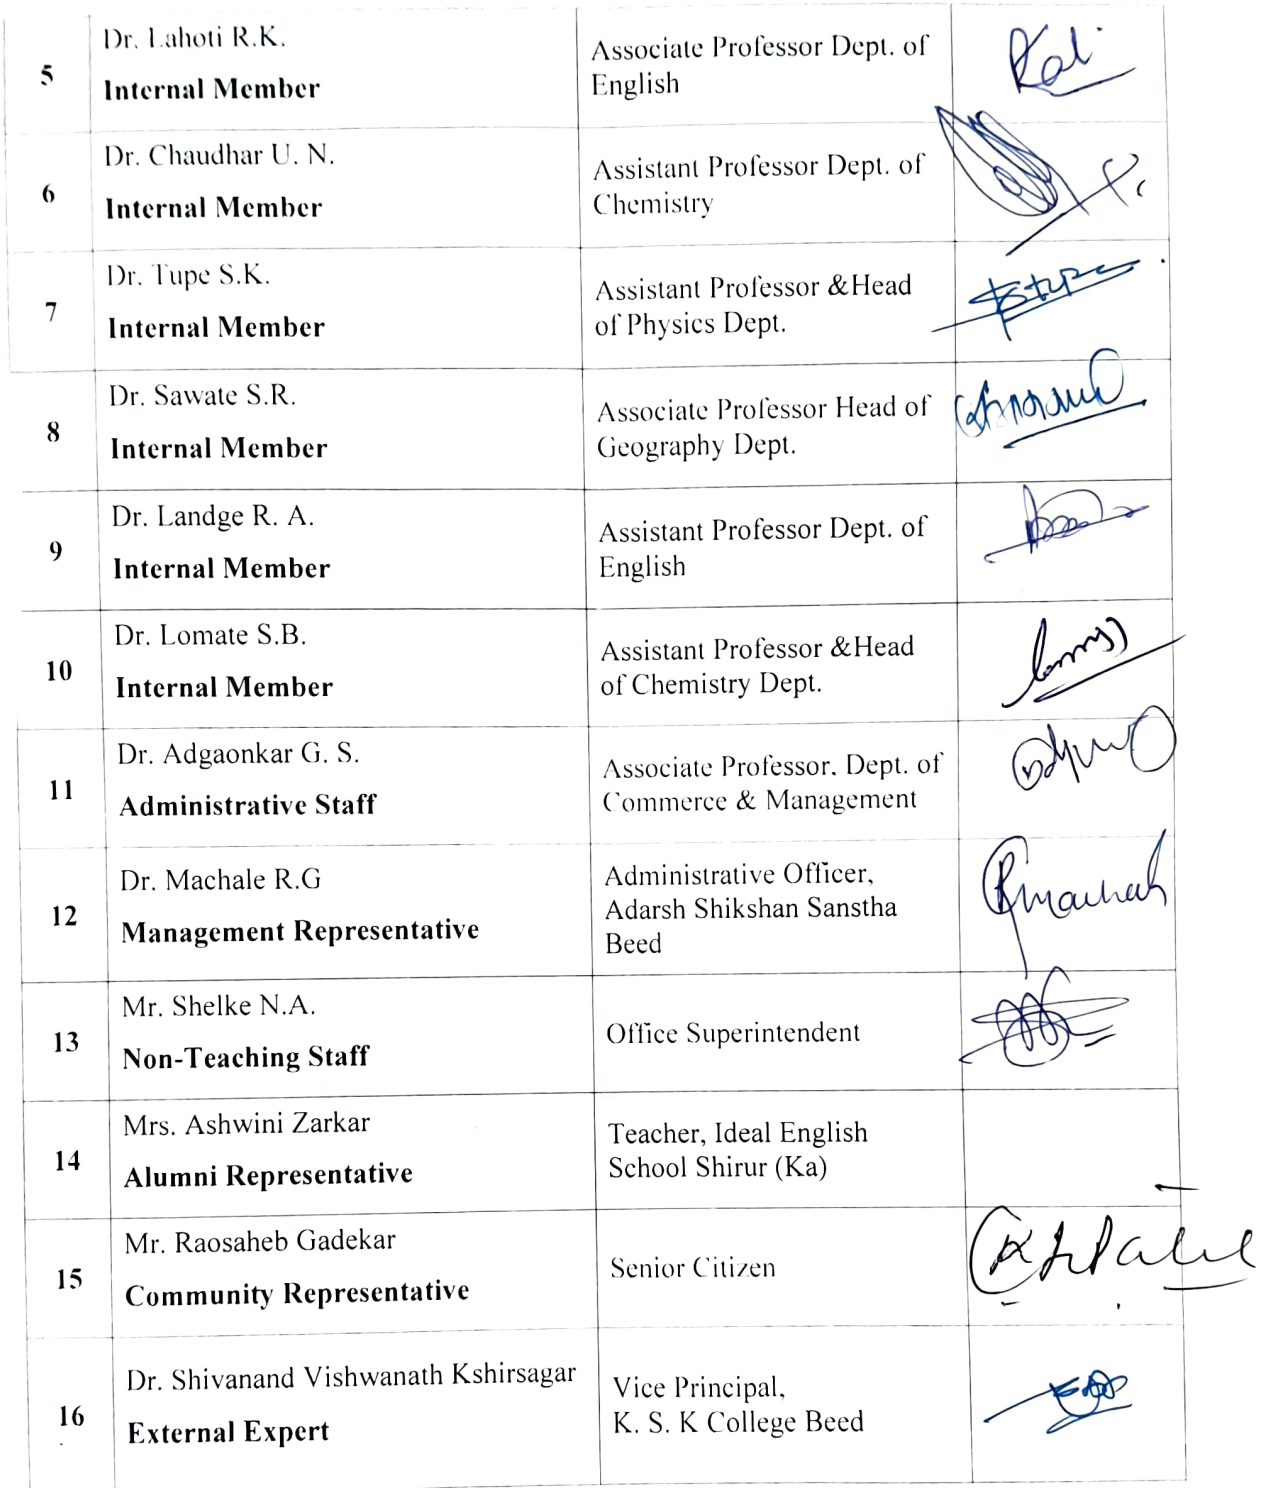 5
Dr. Lahoti R.K.
Internal Member
Associate Professor Dept. of
English
6
Dr. Chaudhar U. N.
Internal Member
Assistant Professor Dept. of
Chemistry
7
Dr. Tupe S.K.
Internal Member
Assistant Professor &Head
of Physics Dept.
8
Dr. Sawate S.R.
Internal Member
Associate Professor Head of
Geography Dept.
9
Dr. Landge R. A.
Internal Member
Assistant Professor Dept. of
English
10
Dr. Lomate S.B.
Internal Member
Assistant Professor &Head
of Chemistry Dept.
11
Dr. Adgaonkar G. S.
Administrative Staff
Associate Professor. Dept. of
Commerce & Management
12
Dr. Machale R.G
Management Representative
Administrative Officer,
Adarsh Shikshan Sanstha
Beed
13
Mr. Shelke N.A.
Non-Teaching Staff
Office Superintendent
14
Mrs. Ashwini Zarkar
Alumni Representative
Teacher, Ideal English
School Shirur (Ka)
15
Mr. Raosaheb Gadekar
Community Representative
Senior Citizen
16
Dr. Shivanand Vishwanath Kshirsagar
External Expert
Vice Principal,
K. S. K College Beed